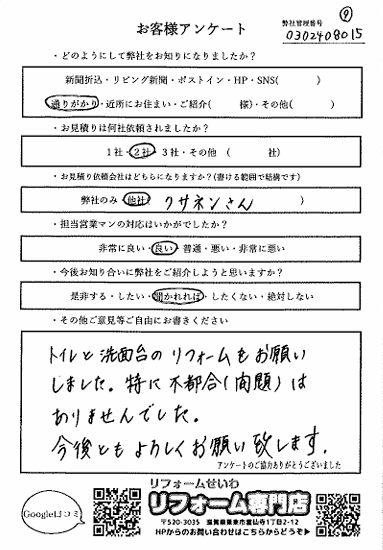 ⑨
お客様アンケート
弊社管理番号
0302408015
・どのようにして弊社をお知りになりましたか?
新聞折込・リビング新聞・ポストイン・HP・SNS( )
通りがかり・近所にお住まい・ご紹介( 様)・その他( )
・お見積りは何社依頼されましたか?
1社・2社・3社・その他 ( 社)
・お見積り依頼会社はどちらになりますか?(書ける範囲で結構です)
弊社のみ 他社( クサネンさん )
・担当営業マンの対応はいかがでしたか?
非常に良い・良い・普通・悪い・非常に悪い
・今後お知り合いに弊社をご紹介しようと思いますか?
是非する・したい・聞かれれば・したくない・絶対しない
・その他ご意見等ご自由にお書きください
トイレと洗面台のリフォームをお願い
しました。特に不都合(問題)は
ありませんでした。
今後ともよろしくお願い致します。
アンケートのご協力ありがとうございました
Google口コミ
リフォームせいわ
リフォーム専門店
〒520-3035 滋賀県栗東市霊仙寺1丁目2-12
HPからのお問い合わせはこちらからどうぞ▶